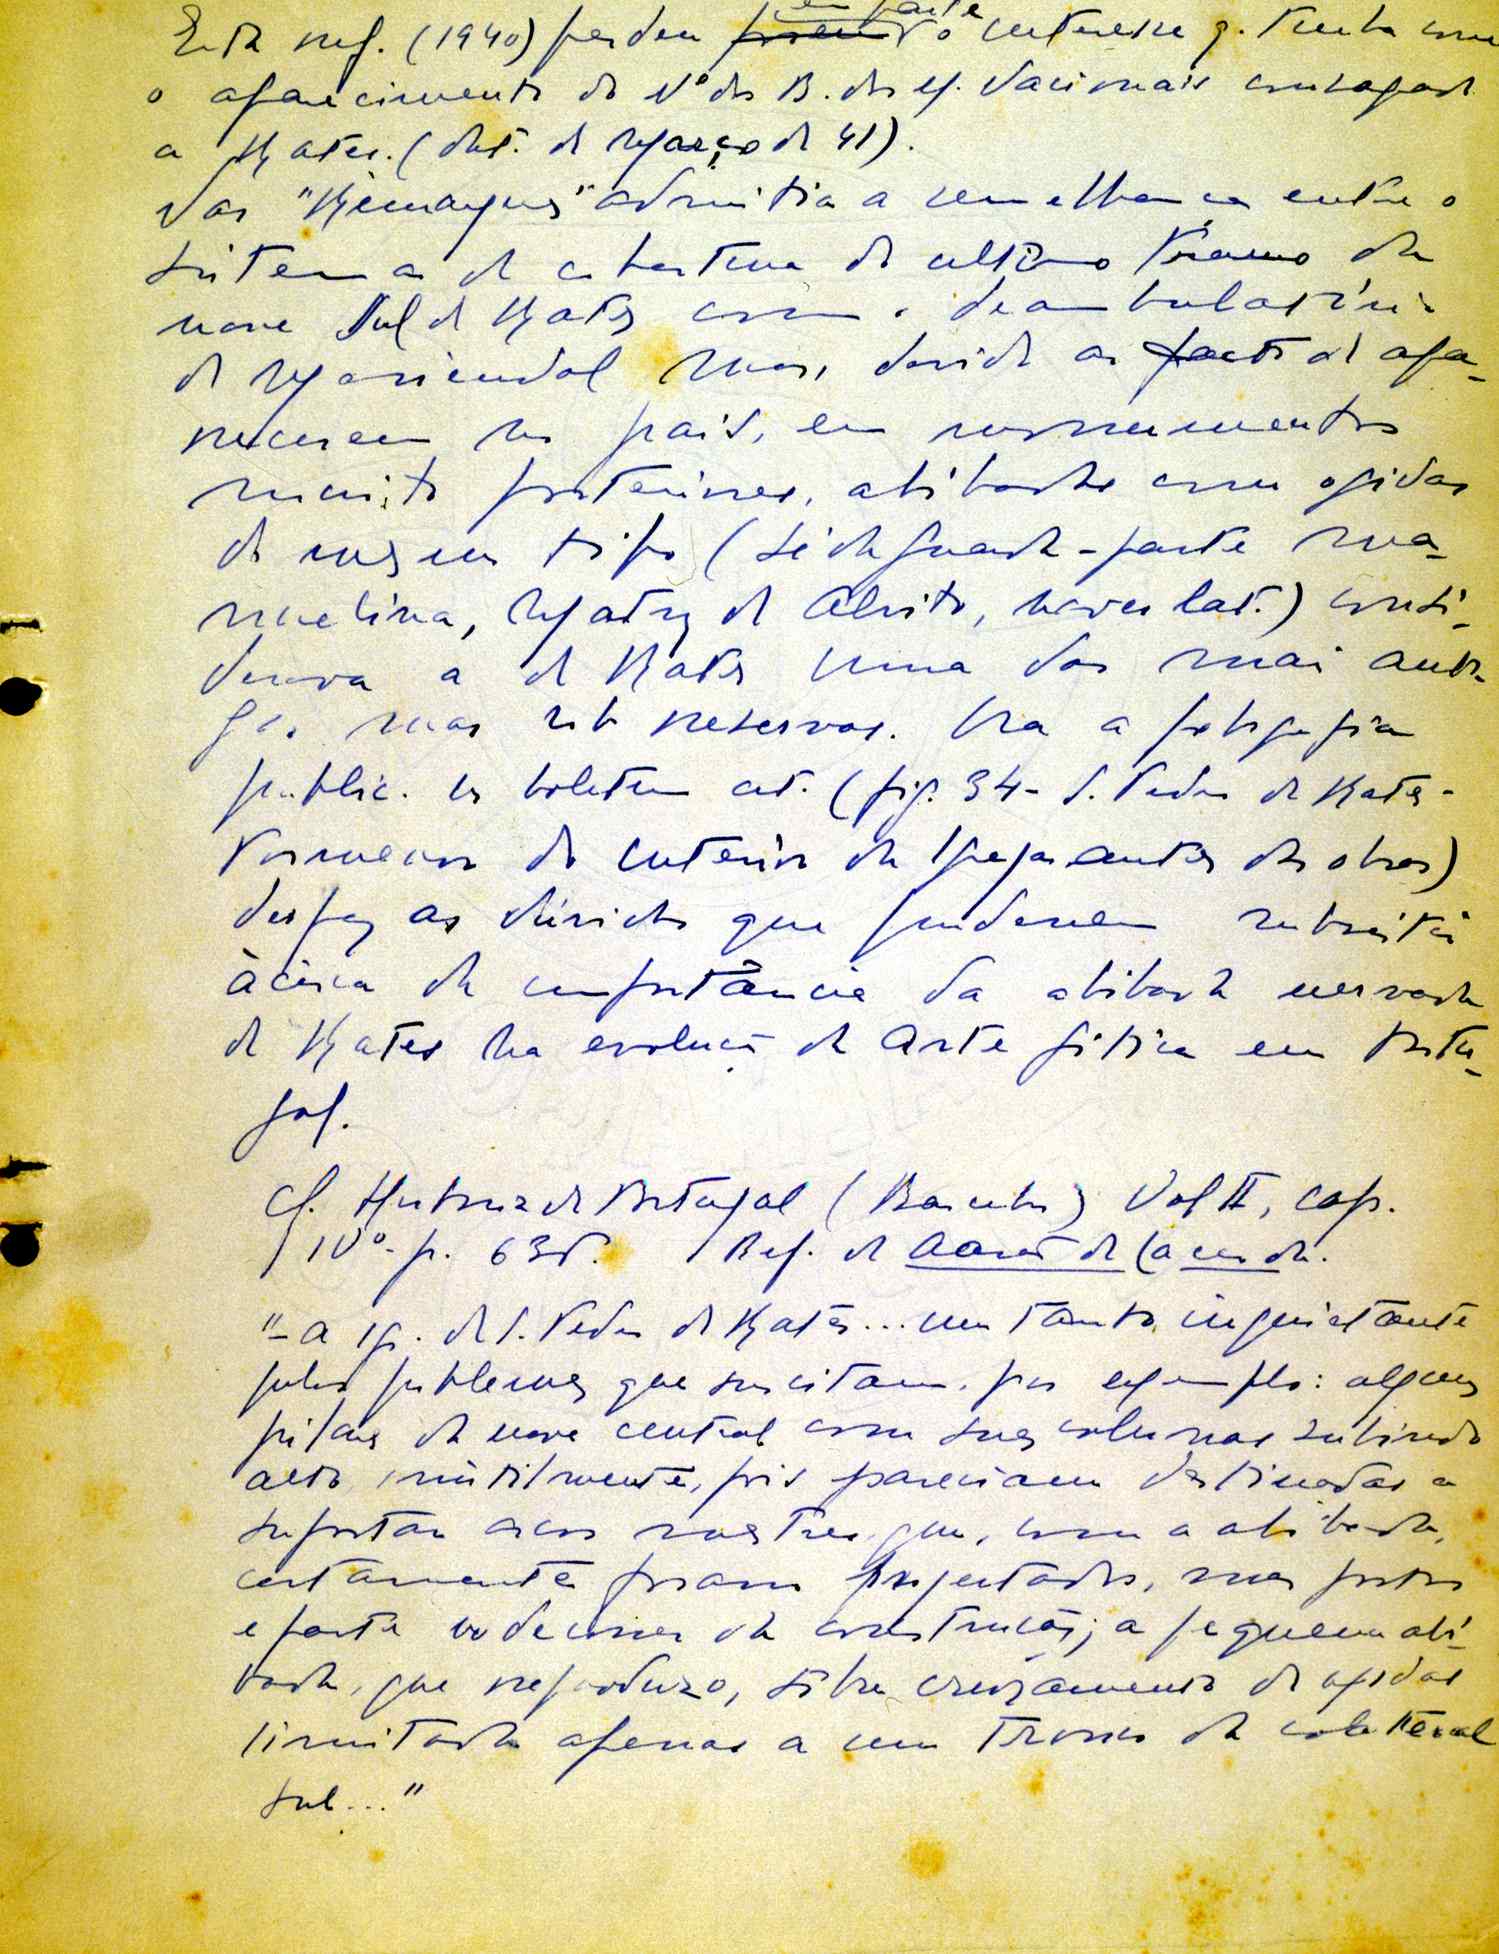 Esta ref. (1940) perdeu em parte o interesse q. tinha com
o aparecimento do Nº do B. dos M. Nacionais consagrado
a Rates. (dat. de Março de 41).
Nas "Remarques" admitia a semelhança entre o
sistema de cobertura do ultimo tramo da
nave Sul de Rates com o deambulatório
de Moriendal mas, devido ao facto de apa-
recerem no país, em monumentos
muito posteriores, abóbadas com ogivas
do mesmo tipo (Sé da Guarda - parte ma-
nuelina, Matriz de Alvito, naves lat.) consi-
derava a de Rates uma das mais anti-
gas mas sob reservas. Ora a fotografia
public. no boletim cit. (fig. 34 - S. Pedro de Rates -
Pormenor do interior da Igreja antes das obras)
desfaz as dúvidas que pudessem subsistir
àcêrca da importância da abóbada nervada
de Rates na evolução da Arte gótica em Portu-
gal.
Cf. Historia de Portugal (Barcelos) Vol II, cap.
IVº - p. 635. Ref. de Aarão de Lacerda.
"- a ig. de S. Pedro de Rates... um tanto inquietante
pelos problemas que suscitam. por exemplo: alguns
pilares da nave central com suas colunas subindo
alto, inùtilmente, pois pareciam destinadas a
suportar arcos mestres que, com a abóbada,
certamente foram projectados, mas postos
e parte no decorrer da construção; a pequena abó-
bada, que reproduzo, sôbre cruzamento de ogivas
limitada apenas a um tramo da colateral
sul..."